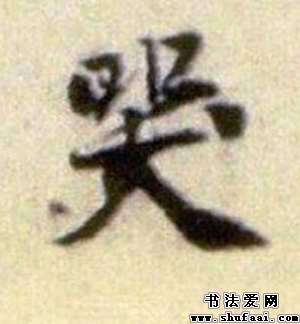 哭
书法爱网
www.shufaai.com